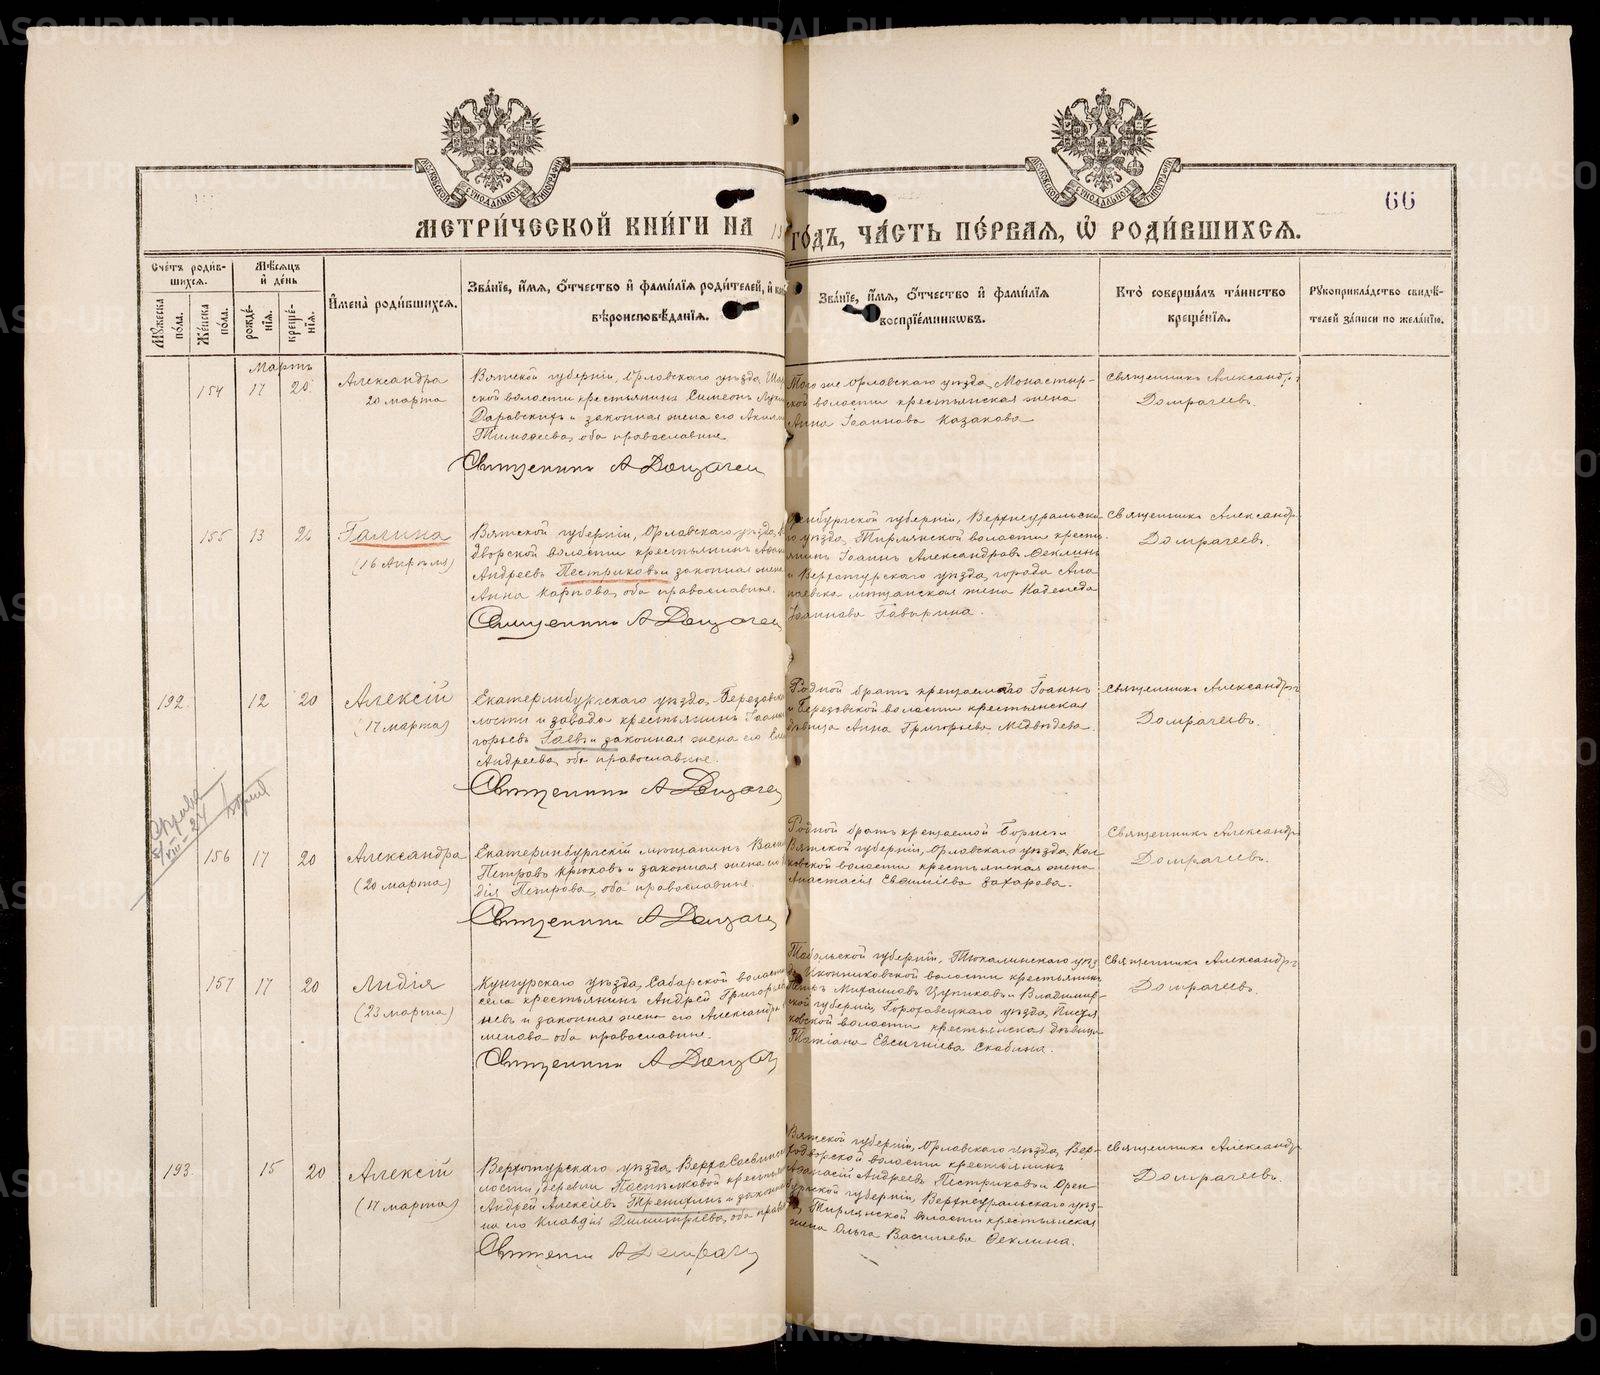 МОСКОВСКОЙ СУНОДАЛЬНОЙ ТИПОГРАФІИ
МОСКОВСКОЙ СУНОДАЛЬНОЙ ТИПОГРАФІИ
66
МЕТРИ́ЧЕСКОЙ КНИ́ГИ НА 19 ГО́ДЪ, ЧА́СТЬ ПЕ́РВАЯ, Ѡ РОДИ́ВШИХСЯ.
Сче́тъ роди́в-
шихся.
Мꙋ́жеска по́ла.
Же́нска по́ла.
Мѣ́сяцъ и де́нь
рожде́-
нїя.
креще́-
нїя.
И҆мена̀ роди́вшихся.
Зва́нїе, и҆́мя, ѻ҆́тчество и҆ фами́лїя роди́телей, и҆
вѣроисповѣ́данїя.
Зва́нїе, и҆́мя, ѻ҆́тчество и҆ фами́лїя
воспрїе́мникѡвъ.
Кто̀ соверша́лъ та́инство
креще́нїя.
Рꙋкоприкла́дство свидѣ́-
телей за́писи по жела́нїю.
Мартъ
154 17 20
Александра
20 марта
Вятской губерніи, Орловскаго уѣзда,
ской волости крестьянинъ Симеонъ
Даровскихъ и законная жена его
Тимофеева, оба православные
Священникъ А Домрачев
Того же Орловскаго уѣзда, Монастыр-
ской волости крестьянская жена
Анна Іоаннова Казакова
Священникъ Александръ
Домрачевъ.
155 13 20
Галина
(16 Апрѣля)
Вятской губерніи, Орловскаго уѣзда,
дворской волости крестьянинъ
Андреевъ Пестриковъ и законная жена
Анна Карпова, оба православные.
Священникъ А Домрачев
Оренбургской губерніи, Верхнеуральска-
го уѣзда, Тирлянской волости кресть-
янинъ Іоаннъ Александровъ Феклинъ
и Верхотурскаго уѣзда, города Ала-
паевска мѣщанская жена Надежда
Іоаннова Гавырина.
Священникъ Александръ
Домрачеевъ.
192 12 20
Алексій
(17 марта)
Екатеринбургскаго уѣзда, Березовской
лости и завода крестьянинъ Іоаннъ
горьевъ Гаевъ и законная жена его
Андреева, оба православные.
Священникъ А Домрачев
Родной братъ крещаемаго Іоаннъ
и Березовской волости крестьянская
дѣвица Анна Григорьева Медвѣдева.
Священникъ Александръ
Домрачевъ.
156 17 20
Александра
(20 марта)
Екатеринбургскій мѣщанинъ
Петровъ Крюковъ и законная жена его
дія Петрова, оба православные.
Священникъ А Домрачев
Родной братъ крещаемой Борисъ и
Вятской губерніи, Орловскаго уѣзда,
ковской волости крестьянская жена
Анастасія Евфиміева Захарова.
Священникъ Александръ
Домрачевъ.
157 17 20
Лидія
(23 марта)
Кунгурскаго уѣзда, Сабарской волости
села крестьянинъ Андрей Григорьевъ
невъ и законная жена его Александра
менова оба православные.
Священникъ А Домрач
Тобольской губерніи, Тюкалинскаго уѣз-
да, Иконниковской волости крестьянинъ
Михаиловъ Цупиковъ и Владимир-
ской губерніи, Гороховецкаго уѣзда,
ковской волости крестьянская дѣвица
Татіана Евсигніева Скобина.
Священникъ Александръ
Домрачевъ.
193 15 20
Алексій
(17 марта)
Верхотурскаго уѣзда,
лости, деревни крестьянинъ
Андрей Алексіевъ Тренихинъ и законная
на его Клавдія Димитріева, оба прав
Священникъ А Домрачев
Вятской губерніи, Орловскаго уѣзда, Вер-
ходворской волости крестьянинъ
Афанасій Андреевъ Пестриковъ и Орен-
бургской губерніи, Верхнеуральскаго уѣз-
да, Тирлянской волости крестьянская
жена Ольга Васильева Феклина.
Священникъ Александръ
Домрачевъ.
METRIKI.GASO-URAL.RU